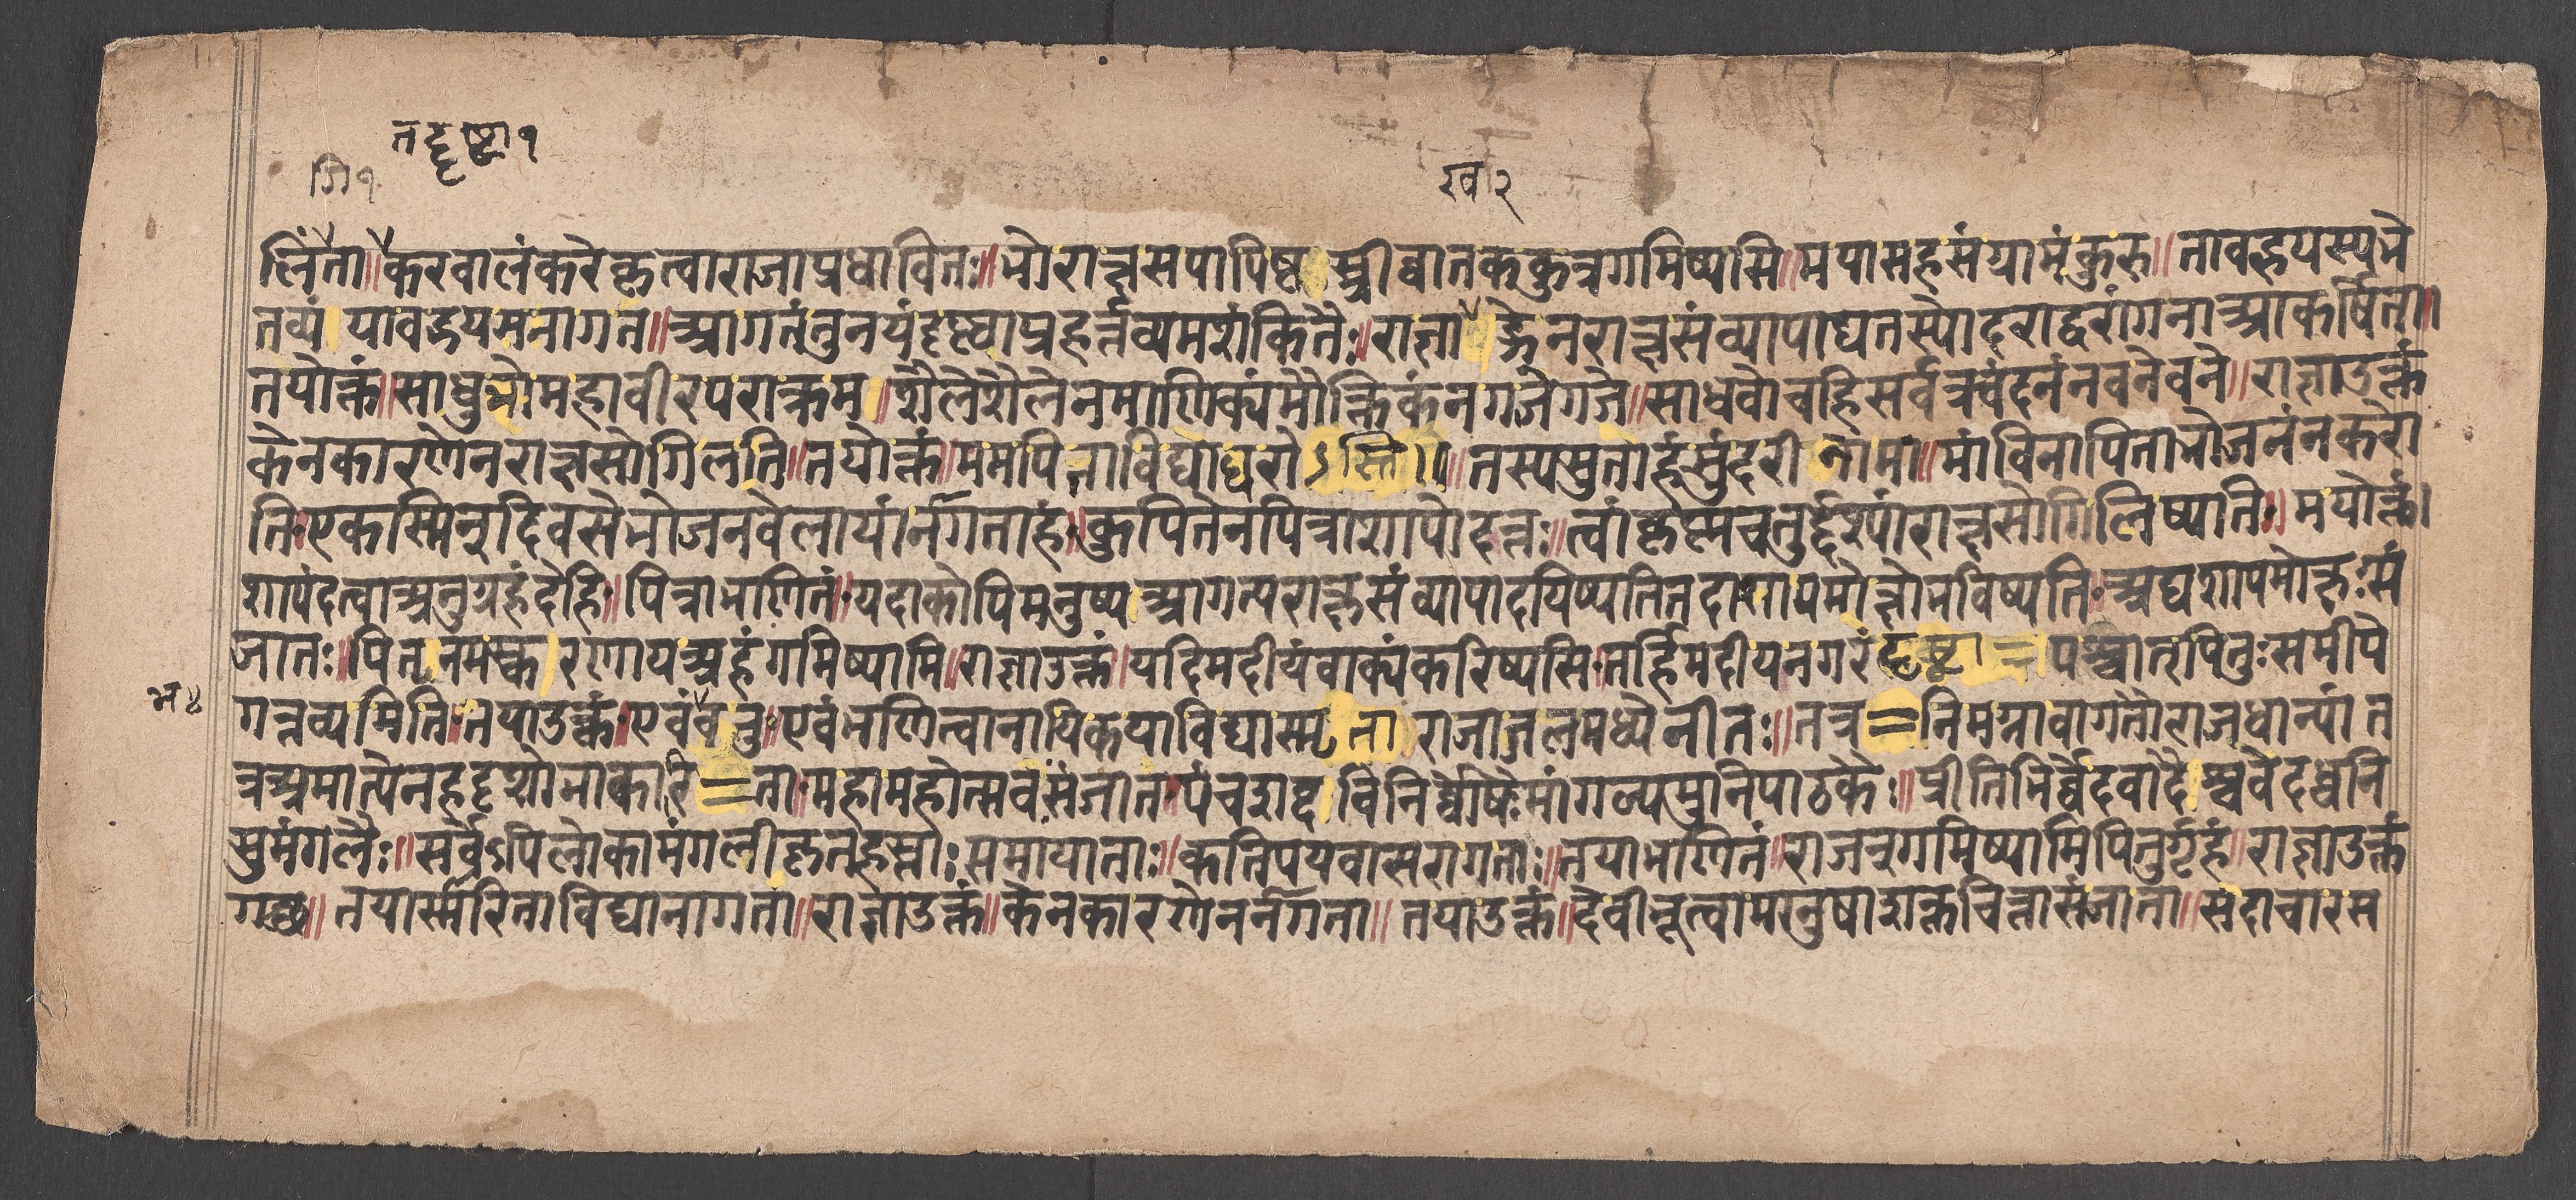 तद्दृष्टा१
गि१
ख२
लिंता॥करवालंकरेकृत्वाराजाप्रधावितः॥भोराक्षसपापिष्टस्त्रीघातककुत्रगमिष्यसि॥मयासहसंग्रामंकुरु॥तावद्भयस्यभे
तव्यंयावद्भयमनागतं॥आगतंतुभयंदृष्ट्वाप्रहर्त्तव्यमशंकितैः॥राज्ञाङ्गेनराक्षसंव्यापाद्यतस्योदराद्वरांगनाआकर्षिता॥
तयोक्तं॥साधुभोमहावीरपराक्रम॥शैलेशैलेनमाणिक्यंमौक्तिकंनगजेगजे॥साधवोवहिसर्वत्रचंदनंनवनेवने॥राज्ञाउक्तं
केनकारणेनराक्षसोगिलति॥तयोक्तं॥ममपिताविद्याधरोऽस्ति॥तस्यसुताहंसुंदरीनामा॥मांविनापिताभोजनंनकरो
ति॰एकस्मिन्दिवसेभोजनवेलायांर्नगताहं॥कुपितेनपित्राशापोदत्तः॥त्वांकृष्मचतुर्द्दश्यांराक्षसोगिलिष्यति॥मयोक्तं।
शापंदत्वाअनुग्रहंदेहि॥पित्राभणितं॥यदाकोपिमनुष्यआगत्यराक्षसंव्यापादयिष्यतितदाशापमोक्षोभविष्यति॰अद्यशापमोक्षःसं
जातः॥पितृनमस्कारणायअहंगमिष्यामि॥राज्ञाउक्तं॥यदिमदीयंवाक्यंकरिष्यसि॰तर्हिमदीयनगरंदृष्टा=पश्चात्पितुःसमीपे
भ४
गन्तव्यमिति॥तयाउक्तं॰एवंवतु॥एवंभणित्वानायिकयाविद्यास्मृताराजाजलमध्येनीतः॥तत्र=निमग्नावागतौराजधान्यांत
त्रअमात्येनहट्टशोभाकारि=ता॰महामहोत्सवंसंजातं॰पंचशब्दविनिर्घोषैर्मांगल्यमुनिपाठकैः॥प्रीतिभिर्वेदवादैश्चवेदध्वनि
सुमंगलैः॥सर्वेऽपिलोकामंगलीकृतहस्ताःसमायाताः॥कतिपयवासरागताः॥तयाभणितं॥राजन्गमिष्यामिपितुर्गृहं॥राज्ञाउक्तं
गच्छ॥तयार्स्मरिताविद्यानागता॥राज्ञाउक्तं॥केनकारणेनर्नगता॥तयाउक्तं॥देवीभूत्वामानुषाशक्तचित्तासंजाता॥सदाचारम